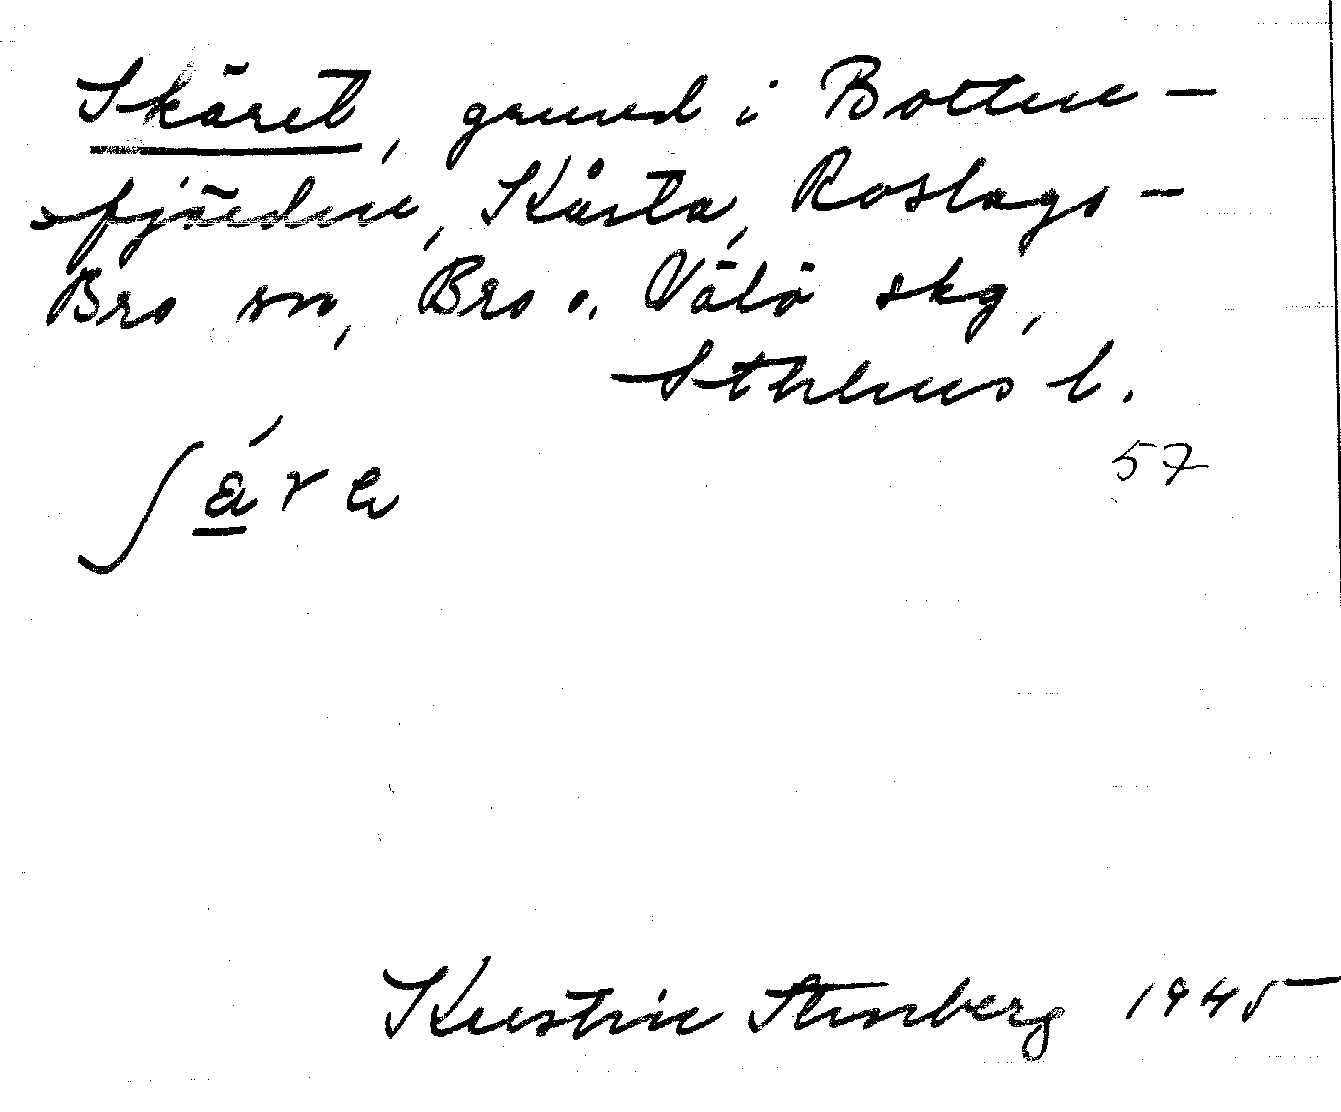 Skäret, grund i Botten-
fjärden, Kårsta, Roslags-
Bro sn, Bro o. Vätö skg,
Sthlms l.
57
ʃä́rɐ
Kerstin Stenberg 1945